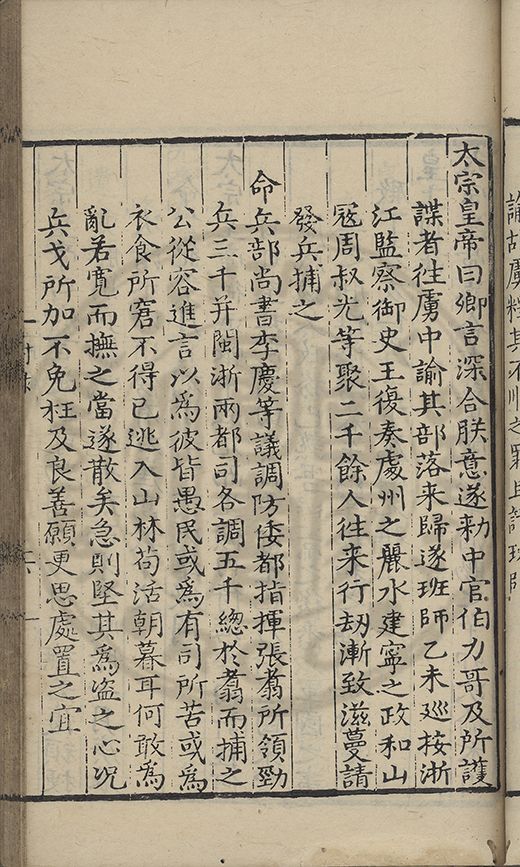 太宗皇帝曰卿言深合朕意遂勑中官伯力哥及所護
諜者往虜中諭其部落来歸遂班師乙未廵按浙
江監察御史王復奏處州之麗水建寧之政和山
寇周叔光等聚二千餘人往来行刼漸致滋蔓請
發兵捕之
命兵部尚書李慶等議調防倭都指揮張翥所領勁
兵三千并閩浙兩都司各調五千總於翥而捕之
公從容進言以為彼皆愚民或為有司所苦或為
衣食所窘不得已逃入山林茍活朝暮耳何敢為
亂若寛而撫之當遂散矣急則堅其為盗之心况
兵戈所加不免枉及良善願更思處置之宜